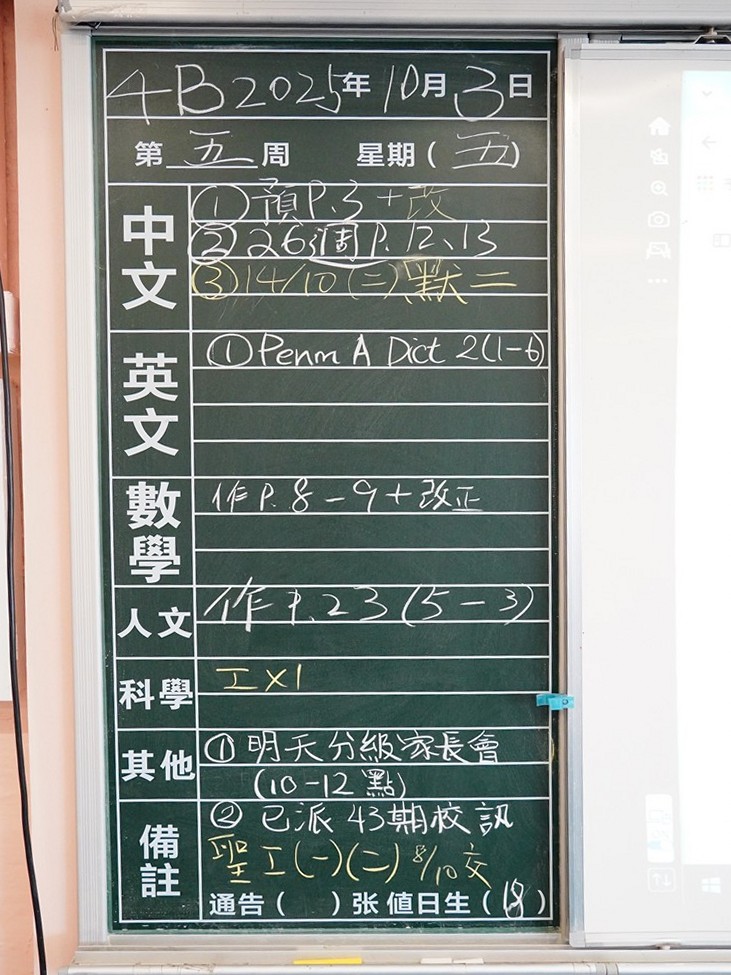 4B 2025年10月3日
第五周 星期(五)
中文
①預P.3+改
②26週P.12、13
③14/10(二)默二
英文
①Penm A Dict 2(1-6)
數學
作P.8-9+改正
人文
作P.23(5-3)
科學
工×1
其他
①明天分級家長會
(10-12點)
備註
②已派43期校訊
聖工(一)(二)8/10交
通告( )张 值日生(18)